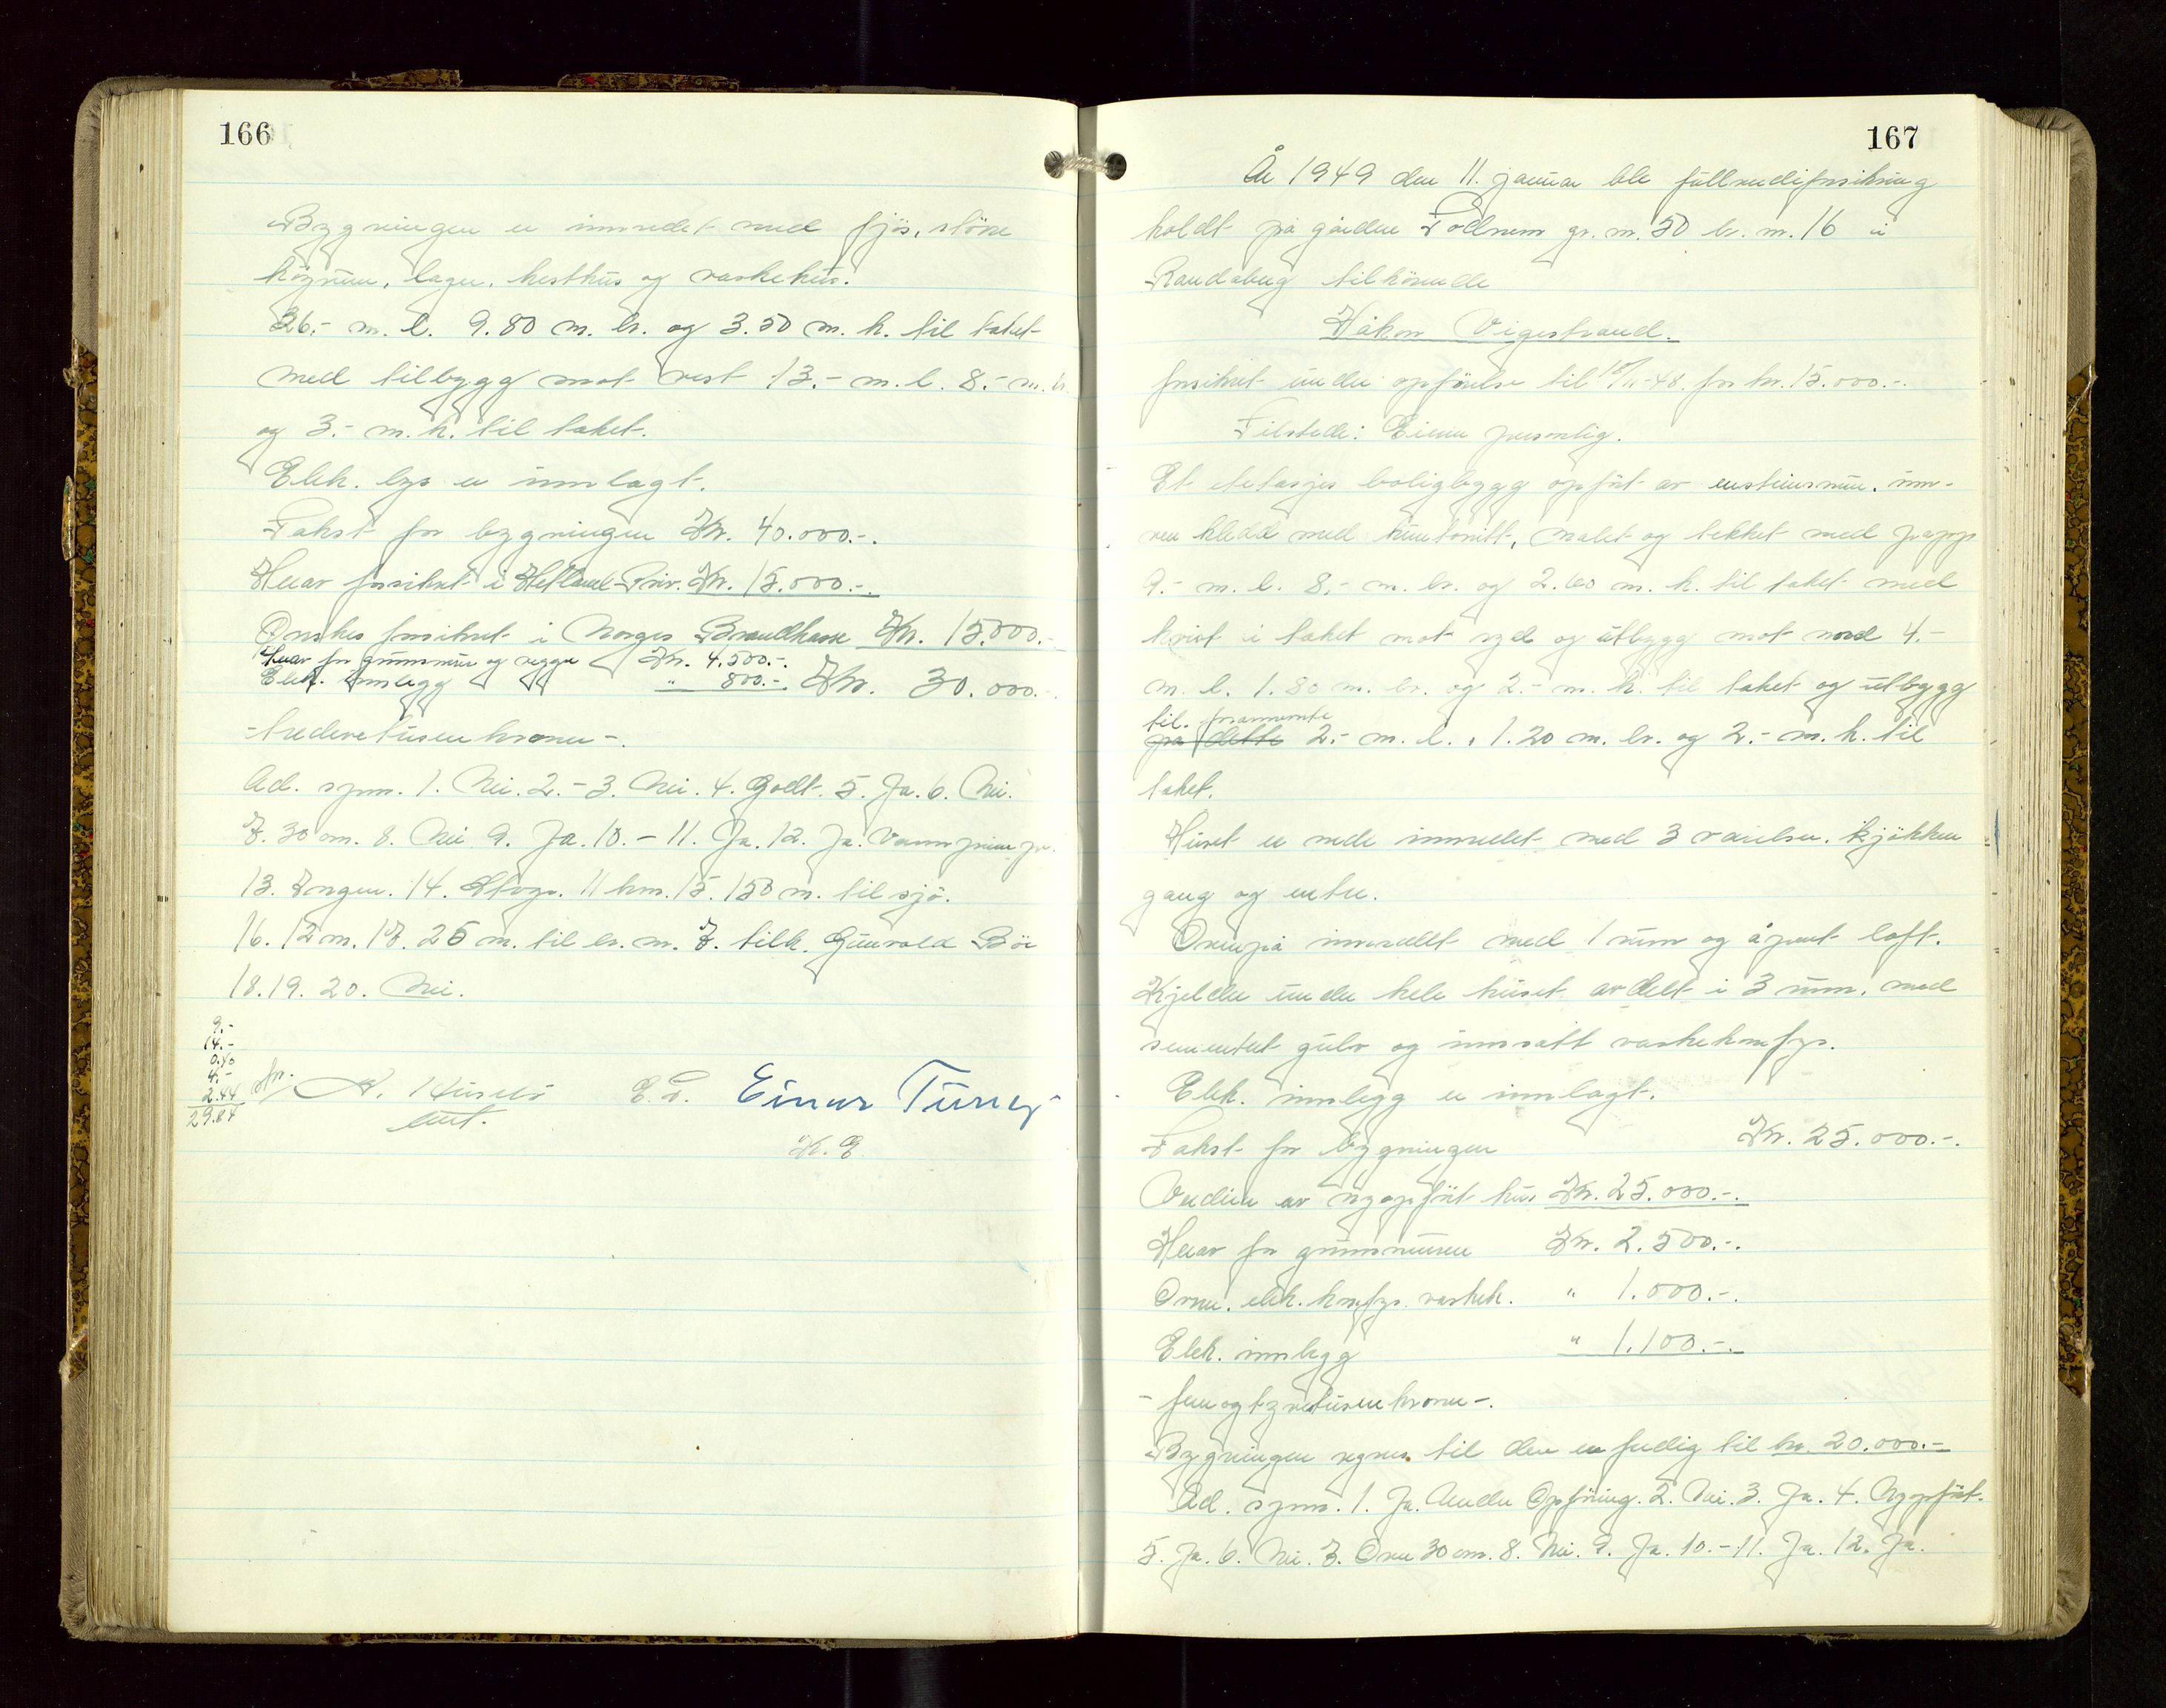 166
Bygningen er innredet med fjøs, større
høyrum, lager, hesthus og vaskehus.
26.- m. l. 9.80 m. br. og 3.50 m. h. til taket
med tilbygg mot vest 13.- m. l. 8.- m. br.
og 3.- m. h. til taket.
Elek. lys er innlagt.
Takst for bygningen Kr. 40.000.-.
Herav forsikret i Hetland Priv. Kr. 15.000.-.
Ønskes forsikret i Norges Brandkasse Kr. 15.000.-
Herav for grunnmur og vegger Kr. 4.500.-.
Elek. innlegg " 800.-. Kr. 30.000.-
- tredevetusen kroner -.
Ad. spm. 1. Nei. 2.- 3. Nei. 4. Godt. 5. Ja. 6. Nei.
7. 30 cm. 8. Nei 9. Ja. 10.- 11. Ja. 12. Ja.
13. Ingen. 14. 11 km. 15. 150 m. til sjø.
16. 12 m. 17. 25 m. til br. nr. 7. tilh. Gunvald Bøe
18. 19. 20. Nei.
9.-
14.-
0.40
4.-
2.44
29.84
E. T. Einar
K. G.
167
År 1949 den 11. januar ble fullverdiforsikring
holdt på gården Todnem gr. nr. 50 br. nr. 16 i
Randaberg tilhørende
Håkon Vigestrand.
forsikret under opførelse til 18/11-48 for kr. 15.000.-.
Tilstede: Eieren personlig.
Et etetasjes boligbygg opført av enstensmur. inn-
ven kledd med huntonitt, malet og tekket med papp
9.- m. l. 8.- m. br. og 2.60 m. h. til taket med
kvist i taket mot syd og utbygg mot nord 4.-
m. l. 1.80 m. br. og 2.- m. h. til taket og utbygg
til. forannevnte
på dette 2.- m. l. , 1.20 m. br. og 2.- m. h. til
taket.
Huset er nede innredet med 3 værelser. kjøkken
gang og entre.
Ovenpå innredet med 1 rum og åpent loft.
Kjelder under hele huset avdelt i 3 rum. med
sementert gulv og innsatt vaskekomfyr.
Elek. innlegg er innlagt.
Takst for bygningen Kr. 25.000.-.
Verdien av nyopført hus Kr. 25.000.-.
Herav for grunnmuren Kr. 2.500.-.
Ovner. elek. komfyr. vaskek. " 1.000.-.
Elek. innlegg " 1.100.-.
- femogtyvetusen kroner -.
Bygningen regnes til den er ferdig til kr. 20.000.-
Ad. spm. 1. Ja. Under Opføring. 2. Nei. 3. Ja. 4. Nyopført.
5. Ja. 6. Nei. 7. Over 30 cm. 8. Nei. 9. Ja. 10.- 11. Ja. 12. Ja.